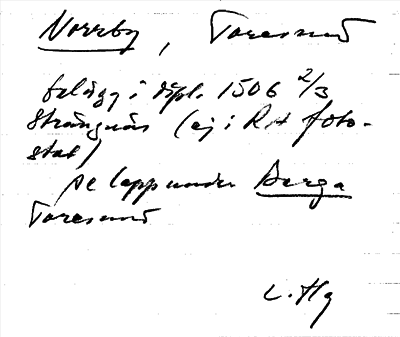 Norrby, Toresund
belägg i dipl. 1506 2/3
Strängnäs (ej i RA foto-
stat)
se lapp under Berga
Toresund
L. Hg